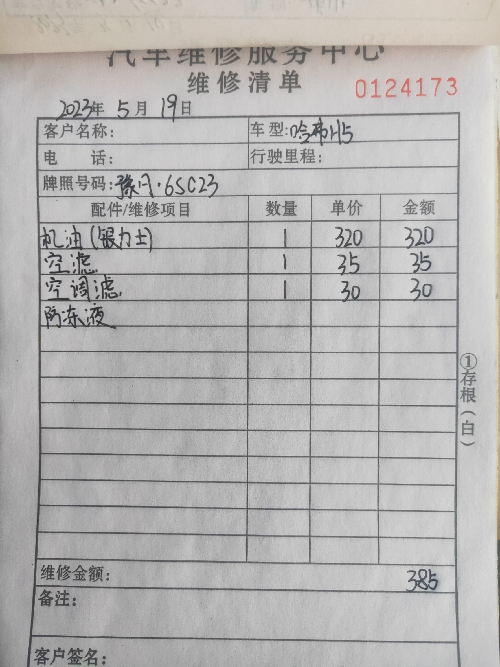 汽车维修服务中心
维修清单
0124173
2023年 5月 19日
客户名称: 车型:哈弗H5
电 话: 行驶里程:
牌照号码:豫
配件/维修项目 数量 单价 金额
机油(银力士) 1 320 320
空滤 1 35 35
空调滤 1 30 30
防冻液
①存根(白)
维修金额: 385
备注:
客户签名: